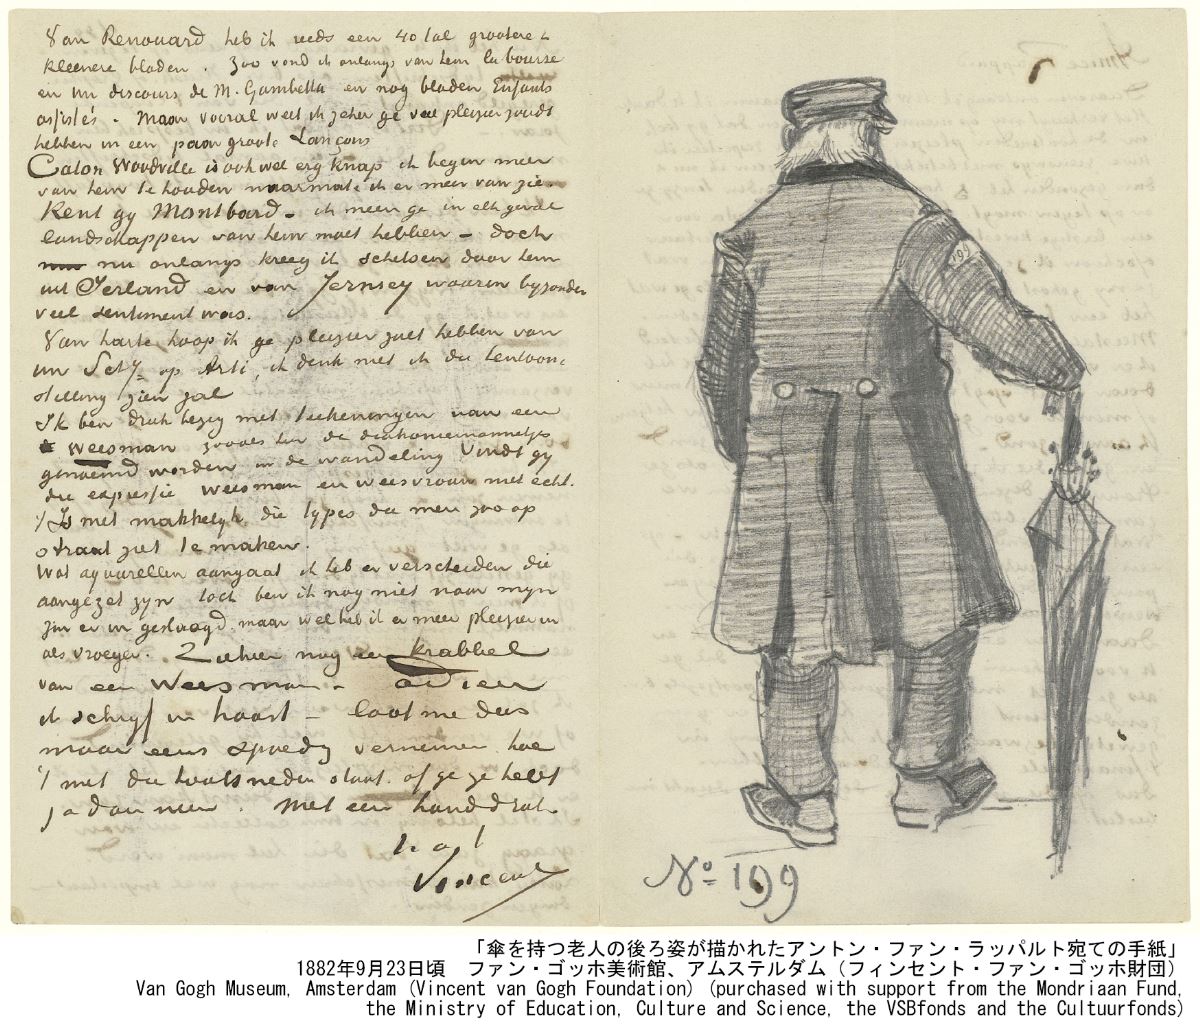 Van Renouard heb ik reeds een 40 tal grootere &
kleenere bladen. Zoo vond ik onlangs van hem la bourse
en un discours de M. Gambetta en nog bladen Enfants
assistés. Maar vooral weet ik zeker ge veel pleizier zoudt
hebben in een paar groote Lançons
Caton Woodville is ook wel erg knap ik begin meer
van hem te houden naarmate ik er meer van zie
Kent gy Montbard – ik meen ge in elk geval
landschappen van hem moet hebben – doch
nu onlangs kreeg ik schetsen door hem
uit Ierland en van Jernsey waarin byzonder
veel sentiment was.
Van harte hoop ik ge pleizier zult hebben van
uw Schy op Arti, ik denk niet ik die tentoon-
stelling zien zal
Ik ben druk bezig met teekeningen van een
weesman zooals hier de diakoniemannetjes
genoemd worden in de wandeling Vindt gy
die expressie weesman en weesvrouw niet echt.
't Is niet makkelyk die types die men zoo op
straat ziet te maken.
Wat aquarellen aangaat ik heb er verscheiden die
aangezet zyn toch ben ik nog niet naar myn
zin er in geslaagd. maar wel heb ik er meer pleizier in
als vroeger. Ziehier nog een krabbel
van een Weesman – adieu
ik schryf in haast – laat me dus
maar eens spoedig vernemen hoe
't met die houtsneden staat. of ge ze hebt
ja dan neen. Met een handdruk
Vincent
199
No 199
「傘を持つ老人の後ろ姿が描かれたアントン・ファン・ラッパルト宛ての手紙」
1882年9月23日頃　ファン・ゴッホ美術館、アムステルダム（フィンセント・ファン・ゴッホ財団）
Van Gogh Museum, Amsterdam (Vincent van Gogh Foundation) (purchased with support from the Mondriaan Fund,
the Ministry of Education, Culture and Science, the VSBfonds and the Cultuurfonds)